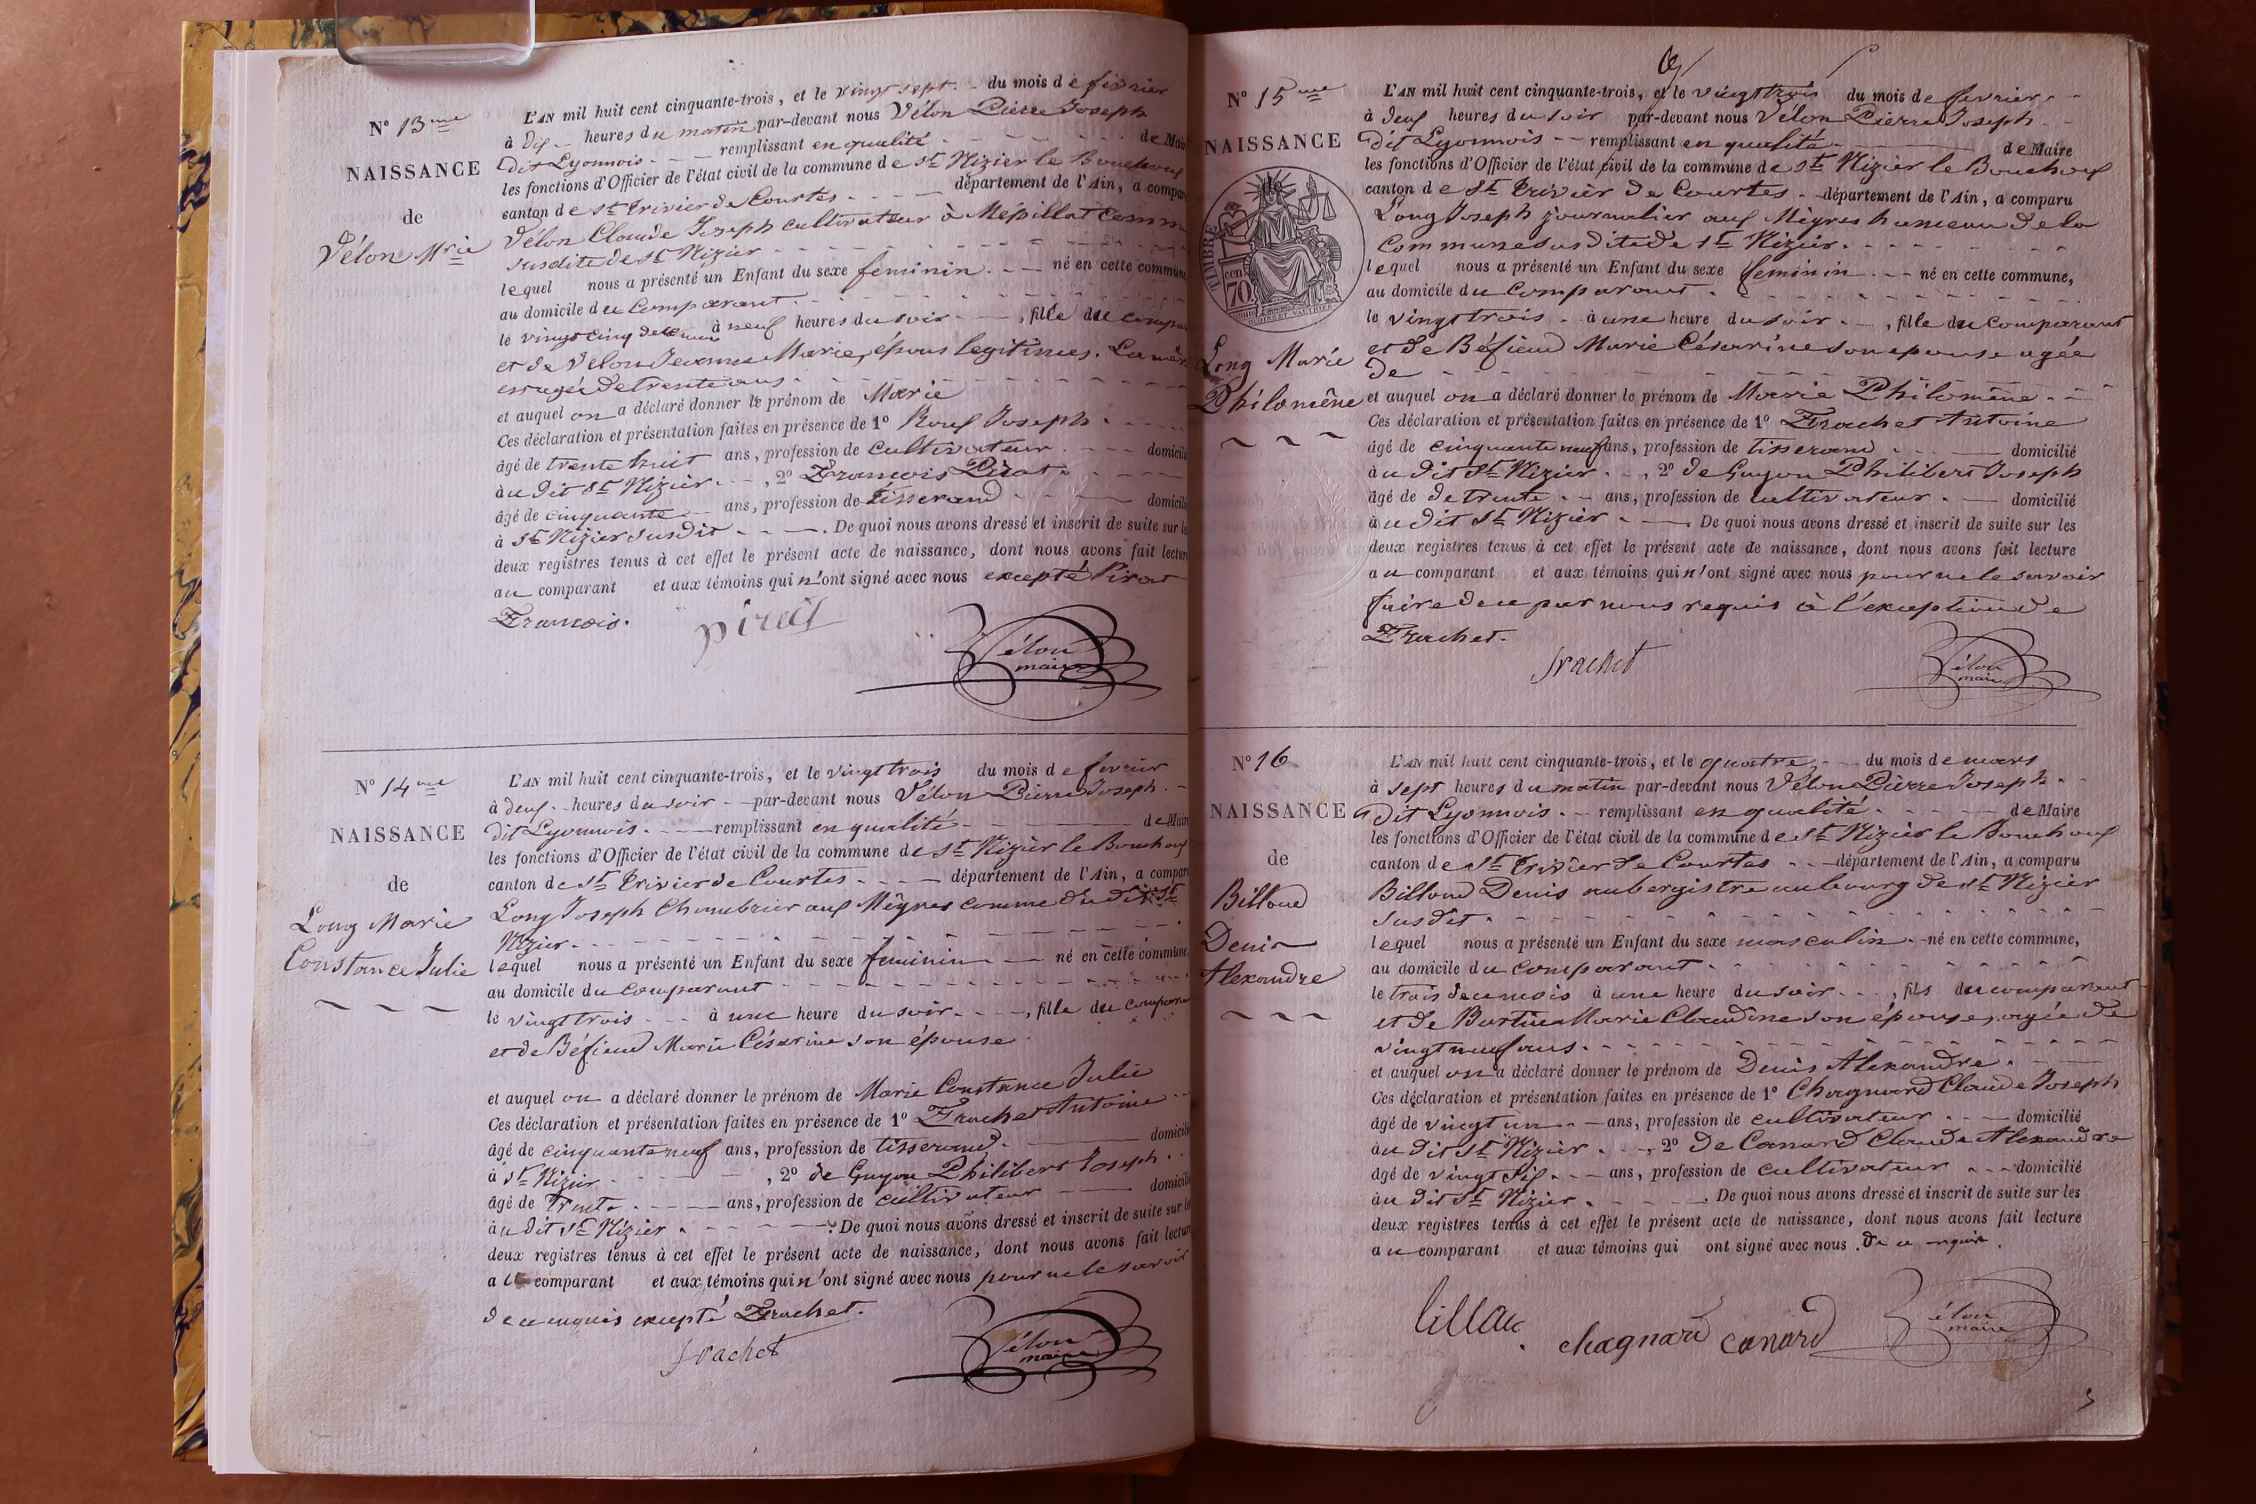 N° 13me
NAISSANCE
de
Vélon Mrie
L'AN mil huit cent cinquante-trois, et le vingt sept du mois de février
à dix heures du matin par-devant nous Vélon Pierre Joseph
dit Lyonnois remplissant en qualité de Mai
les fonctions d'Officier de l'état civil de la commune de St Nizier le Bouchoux
canton de St Trivier de Courtes département de l'Ain, a compar
Vélon Claude Joseph cultivateur à Mépillat comm
susdite de St Nizier
lequel nous a présenté un Enfant du sexe feminin né en cette commune
au domicile du comparant
le vingt cinq à neuf heures du soir, fille du compa
et de Vélon Jeanne Marie, épous legitimes. La mère
est agée de trente ans
et auquel on a déclaré donner le prénom de Marie
Ces déclaration et présentation faites en présence de 1° Roux Joseph
âgé de trente huit ans, profession de cultivateur domicilié
à u dit St Nizier, 2° François Pirat
âgé de cinquante ans, profession de Tisserand domicilié
à St Nizier susdit. De quoi nous avons dressé et inscrit de suite sur les
deux registres tenus à cet effet le présent acte de naissance, dont nous avons fait lecture
au comparant et aux témoins qui n'ont signé avec nous excepté Pirat
François.
pirat
Vélon
maire
N° 14me
NAISSANCE
de
Long Marie
Constance Julie
L'AN mil huit cent cinquante-trois, et le vingt trois du mois de fevrier
à deux heures du soir par-devant nous Vélon Pierre Joseph
dit Lyonnois remplissant en qualité de Maire
les fonctions d'Officier de l'état civil de la commune de St Nizier le Bouchoux
canton de St Trivier de Courtes département de l'Ain, a compar
Long Joseph Chambrier aux Mêgres comme du dit St
Nizier
lequel nous a présenté un Enfant du sexe feminin né en cette commune
au domicile du comparant
le vingt trois à une heure du soir, fille du compara
et de Béfieud Marie Césarine son épouse
et auquel on a déclaré donner le prénom de Marie Constance Julie
Ces déclaration et présentation faites en présence de 1° Frachet Antoine
âgé de cinquante neuf ans, profession de tisserand domicilié
à St Nizier, 2° de Guyon Philibert Joseph
âgé de Trente ans, profession de cultivateur domicilié
à u dit St Nizier. De quoi nous avons dressé et inscrit de suite sur les
deux registres tenus à cet effet le présent acte de naissance, dont nous avons fait lecture
au comparant et aux témoins qui n'ont signé avec nous pour ne le savoir
de ce enquis excepté Frachet.
frachet
Vélon
maire
N° 15me
NAISSANCE
TIMBRE
cen
70
Long Marie
Philomène
L'AN mil huit cent cinquante-trois, et le vingt trois du mois de fevrier
à deux heures du soir par-devant nous Vélon Pierre Joseph
dit Lyonnois remplissant en qualité de Maire
les fonctions d'Officier de l'état civil de la commune de St Nizier le Bouchoux
canton de St Trivier de Courtes département de l'Ain, a comparu
Long Joseph journalier aux Mêgres hameau de la
commune susdite de St Nizier
lequel nous a présenté un Enfant du sexe feminin né en cette commune,
au domicile du comparant
le vingt trois à une heure du soir, fille du comparant
et de Béfieud Marie Césarine son epouse agée
de
et auquel on a déclaré donner le prénom de Marie Philomène
Ces déclaration et présentation faites en présence de 1° Frachet Antoine
âgé de cinquante neuf ans, profession de tisserand domicilié
à u dit St Nizier, 2° de Guyon Philibert Joseph
âgé de de trente ans, profession de cultivateur domicilié
à u dit St Nizier. De quoi nous avons dressé et inscrit de suite sur les
deux registres tenus à cet effet le présent acte de naissance, dont nous avons fait lecture
au comparant et aux témoins qui n'ont signé avec nous pour ne le savoir
faire de ce par nous requis à l'exception de
Frachet.
frachet
Vélon
maire
N° 16
NAISSANCE
de
Billoud
Denis
Alexandre
L'AN mil huit cent cinquante-trois, et le quatre du mois de mars
à sept heures du matin par-devant nous Vélon Pierre Joseph
dit Lyonnois remplissant en qualité de Maire
les fonctions d'Officier de l'état civil de la commune de St Nizier le Bouchoux
canton de St Trivier de Courtes département de l'Ain, a comparu
Billoud Denis aubergistre au bourg de St Nizier
susdit
lequel nous a présenté un Enfant du sexe masculin né en cette commune,
au domicile du comparant
le trois de ce mois à une heure du soir, fils du comparant
et de Marie Claudine son épouse, agée de
vingt neuf ans
et auquel on a déclaré donner le prénom de Denis Alexandre
Ces déclaration et présentation faites en présence de 1° Chagnard Claude Joseph
âgé de vingt un ans, profession de cultivateur domicilié
à u dit St Nizier, 2° de Canard Claude Alexandre
âgé de vingt six ans, profession de cultivateur domicilié
à u dit St Nizier. De quoi nous avons dressé et inscrit de suite sur les
deux registres tenus à cet effet le présent acte de naissance, dont nous avons fait lecture
au comparant et aux témoins qui ont signé avec nous de ce requis.
chagnard canard
Vélon
maire